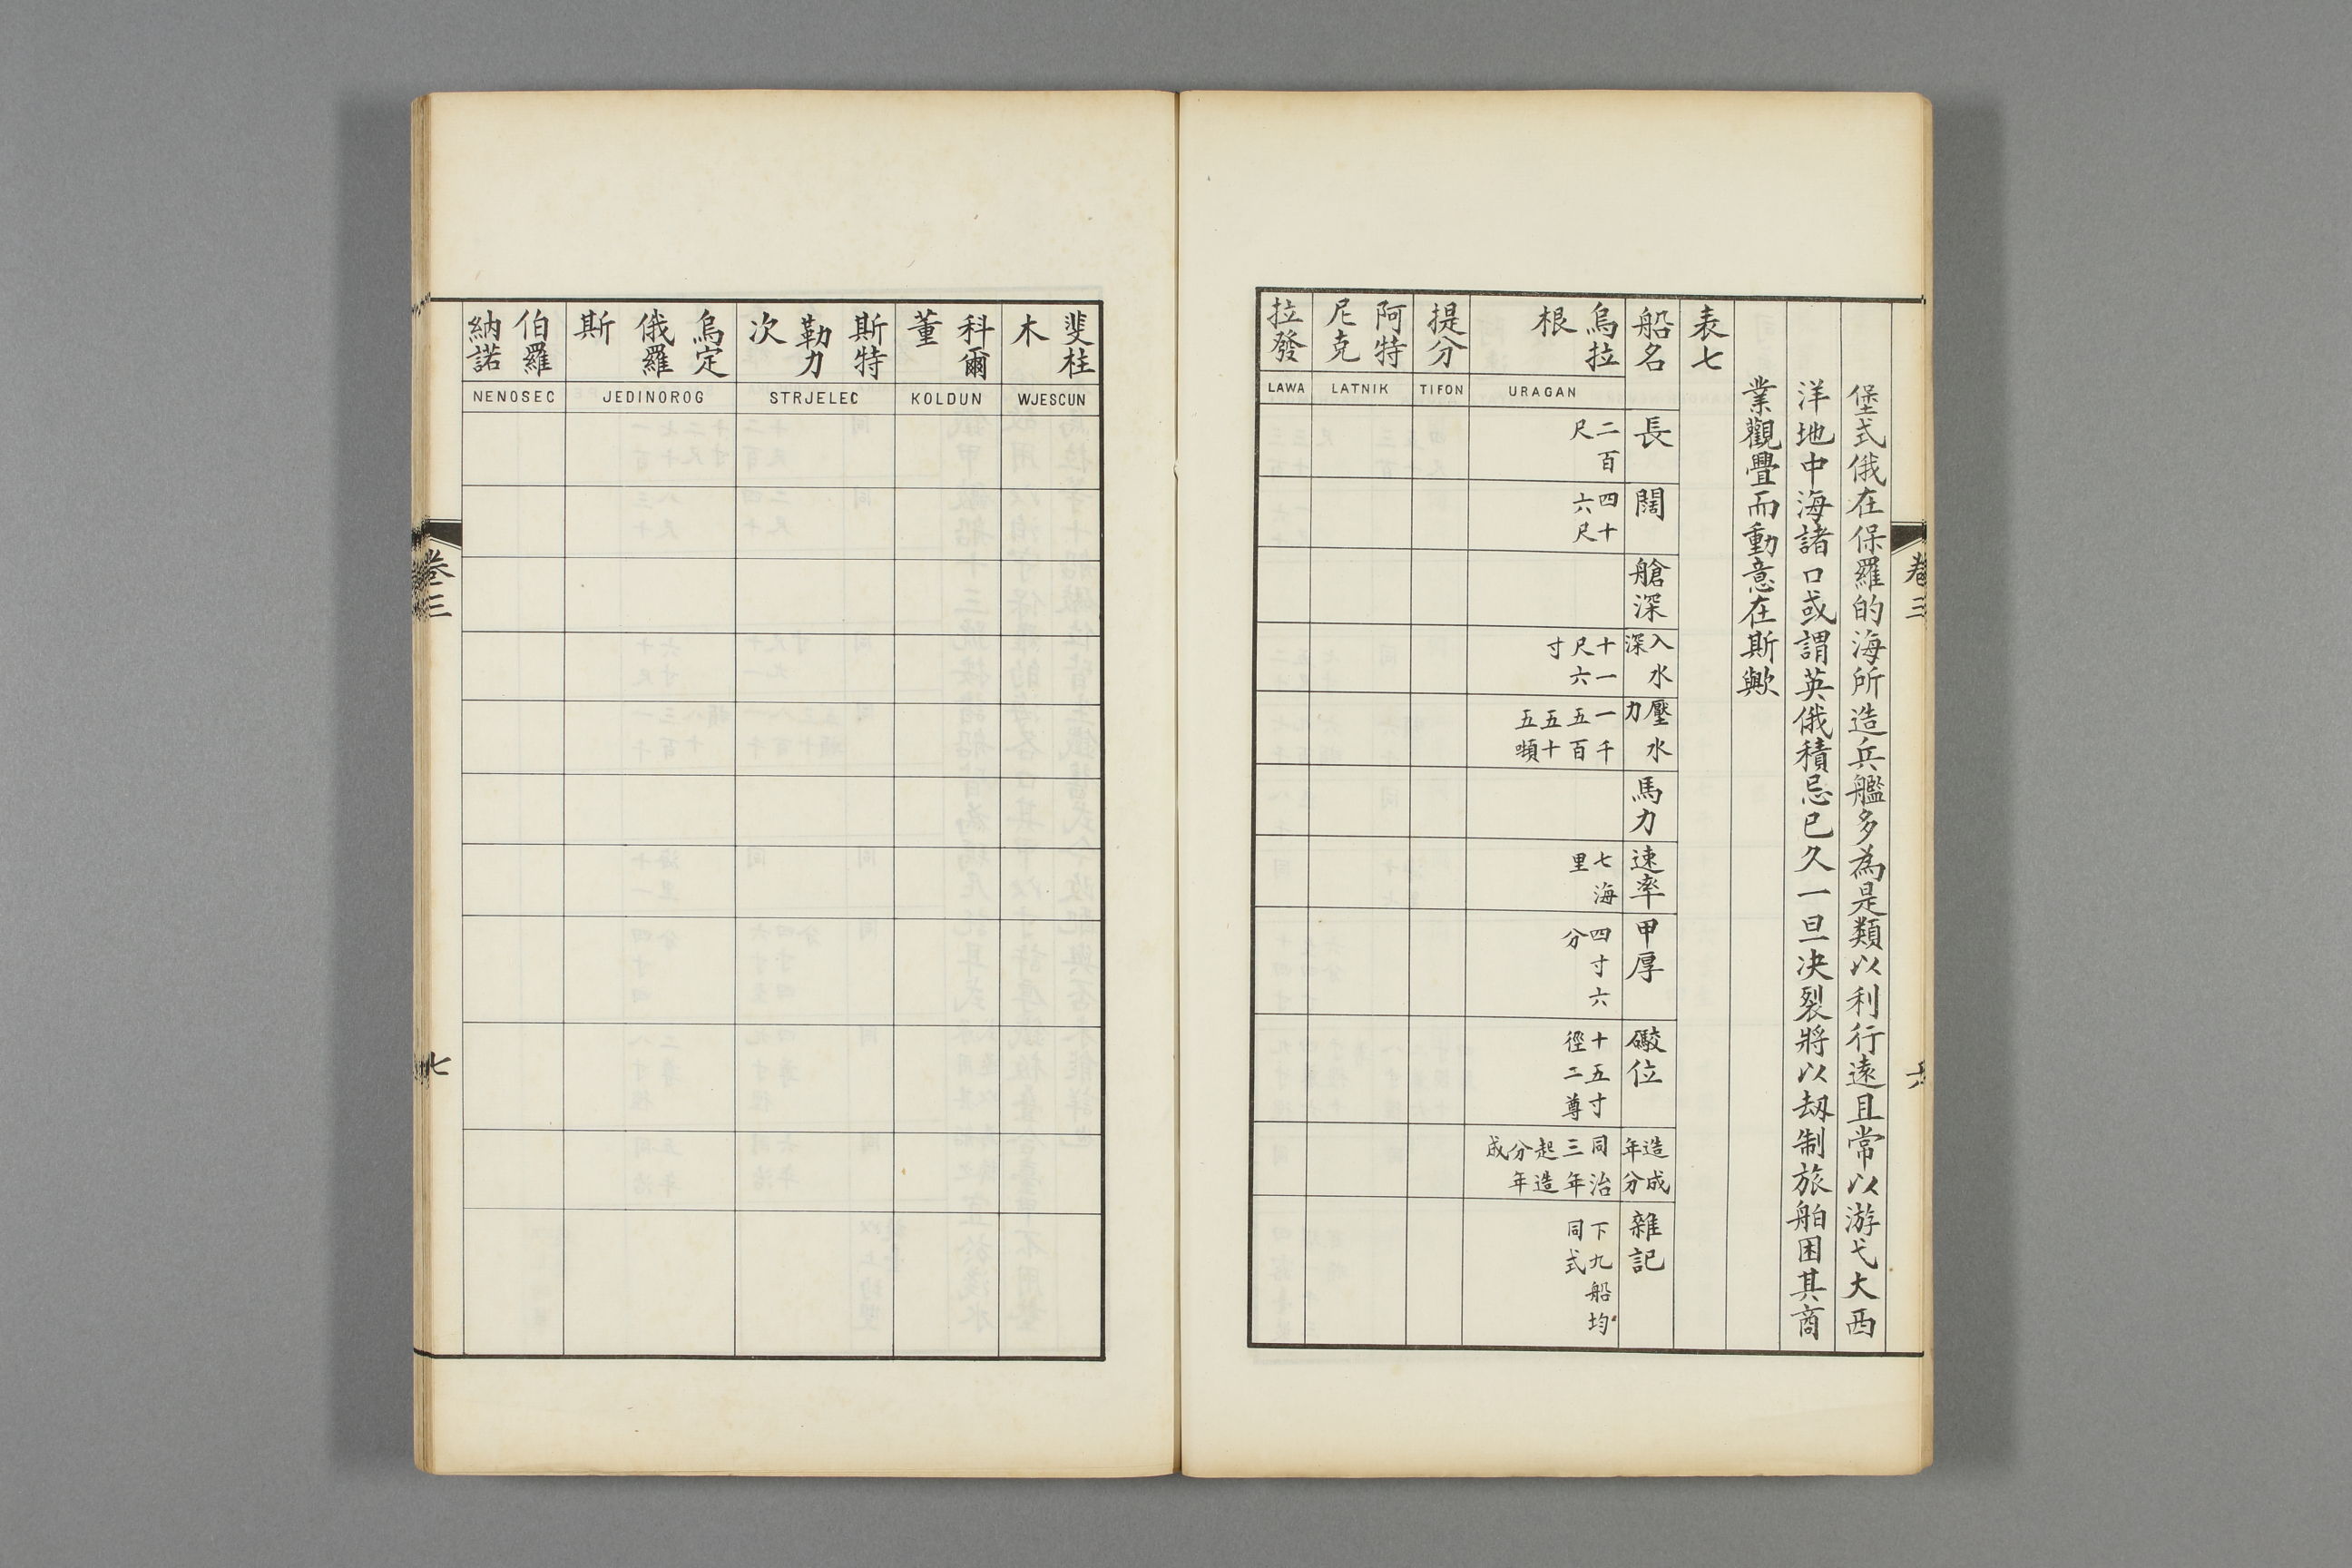 堡式俄在保羅的海所造兵艦多為是類以利行遠且常以游弋大西
洋地中海諸口或謂英俄積忌已久一旦决裂將以刼制旅舶困其商
業觀釁而動意在斯歟
表七
船名
長
闊
艙深
入水深
壓水力
馬力
速率
甲厚
礮位
造成年分
雜記
烏拉根
URAGAN
二百尺
四十六尺
十一尺六寸
一千五百五十五噸
七海里
四寸六分
十五寸徑二尊
同治三年起造分年成
下九船均同式
提分
TIFON
阿特尼克
LATNIK
拉發
LAWA
卷三
斐柱木
WJESCUN
科爾董
KOLDUN
斯特勒力次
STRJELEC
烏定俄羅斯
JEDINOROG
伯羅納諾
NENOSEC
卷三
七